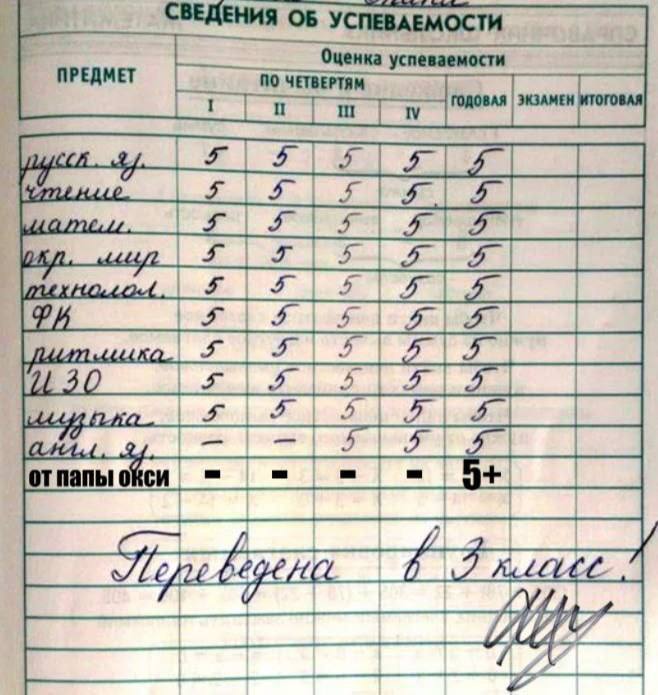 СВЕДЕНИЯ ОБ УСПЕВАЕМОСТИ
ПРЕДМЕТ
Оценка успеваемости
ПО ЧЕТВЕРТЯМ
I II III IV ГОДОВАЯ ЭКЗАМЕН ИТОГОВАЯ
русск. яз. 5 5 5 5 5
чтение 5 5 5 5 5
матем. 5 5 5 5 5
окр. мир 5 5 5 5 5
технолол. 5 5 5 5 5
ФК 5 5 5 5 5
ритмика 5 5 5 5 5
ИЗО 5 5 5 5 5
музыка 5 5 5 5 5
англ. яз. – – 5 5 5
от папы окси - - - - 5+
Переведена в 3 класс!